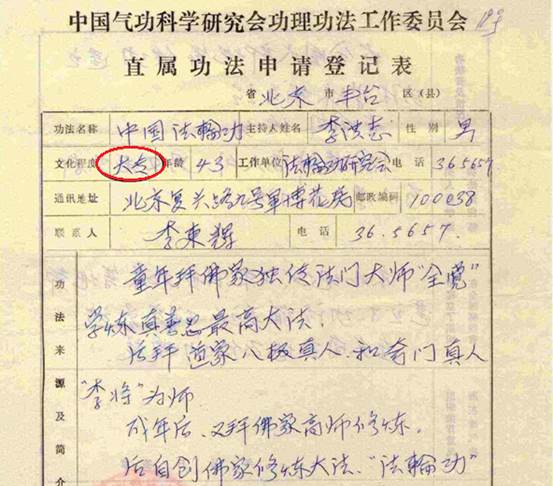 中国气功科学研究会功理功法工作委员会
直属功法申请登记表
省 北京 市 丰台 区(县)
功法名称 中国法輪功 主持人姓名 李洪志 性别 男
文化程度 大专 年龄 43 工作单位 法輪功研究会 电话 365657
通讯地址 北京复兴路九号軍博花房 邮政编码 100038
联系人 李東輝 电话 36.5657.
功法来源及简介
童年拜佛家独传法门大师“全覚”
学炼真善忍最高大法.
后拜道家八极真人.和奇门真人
“李将”为师
成年后.又拜佛家高师修炼.
后自创佛家修炼大法.“法輪功”